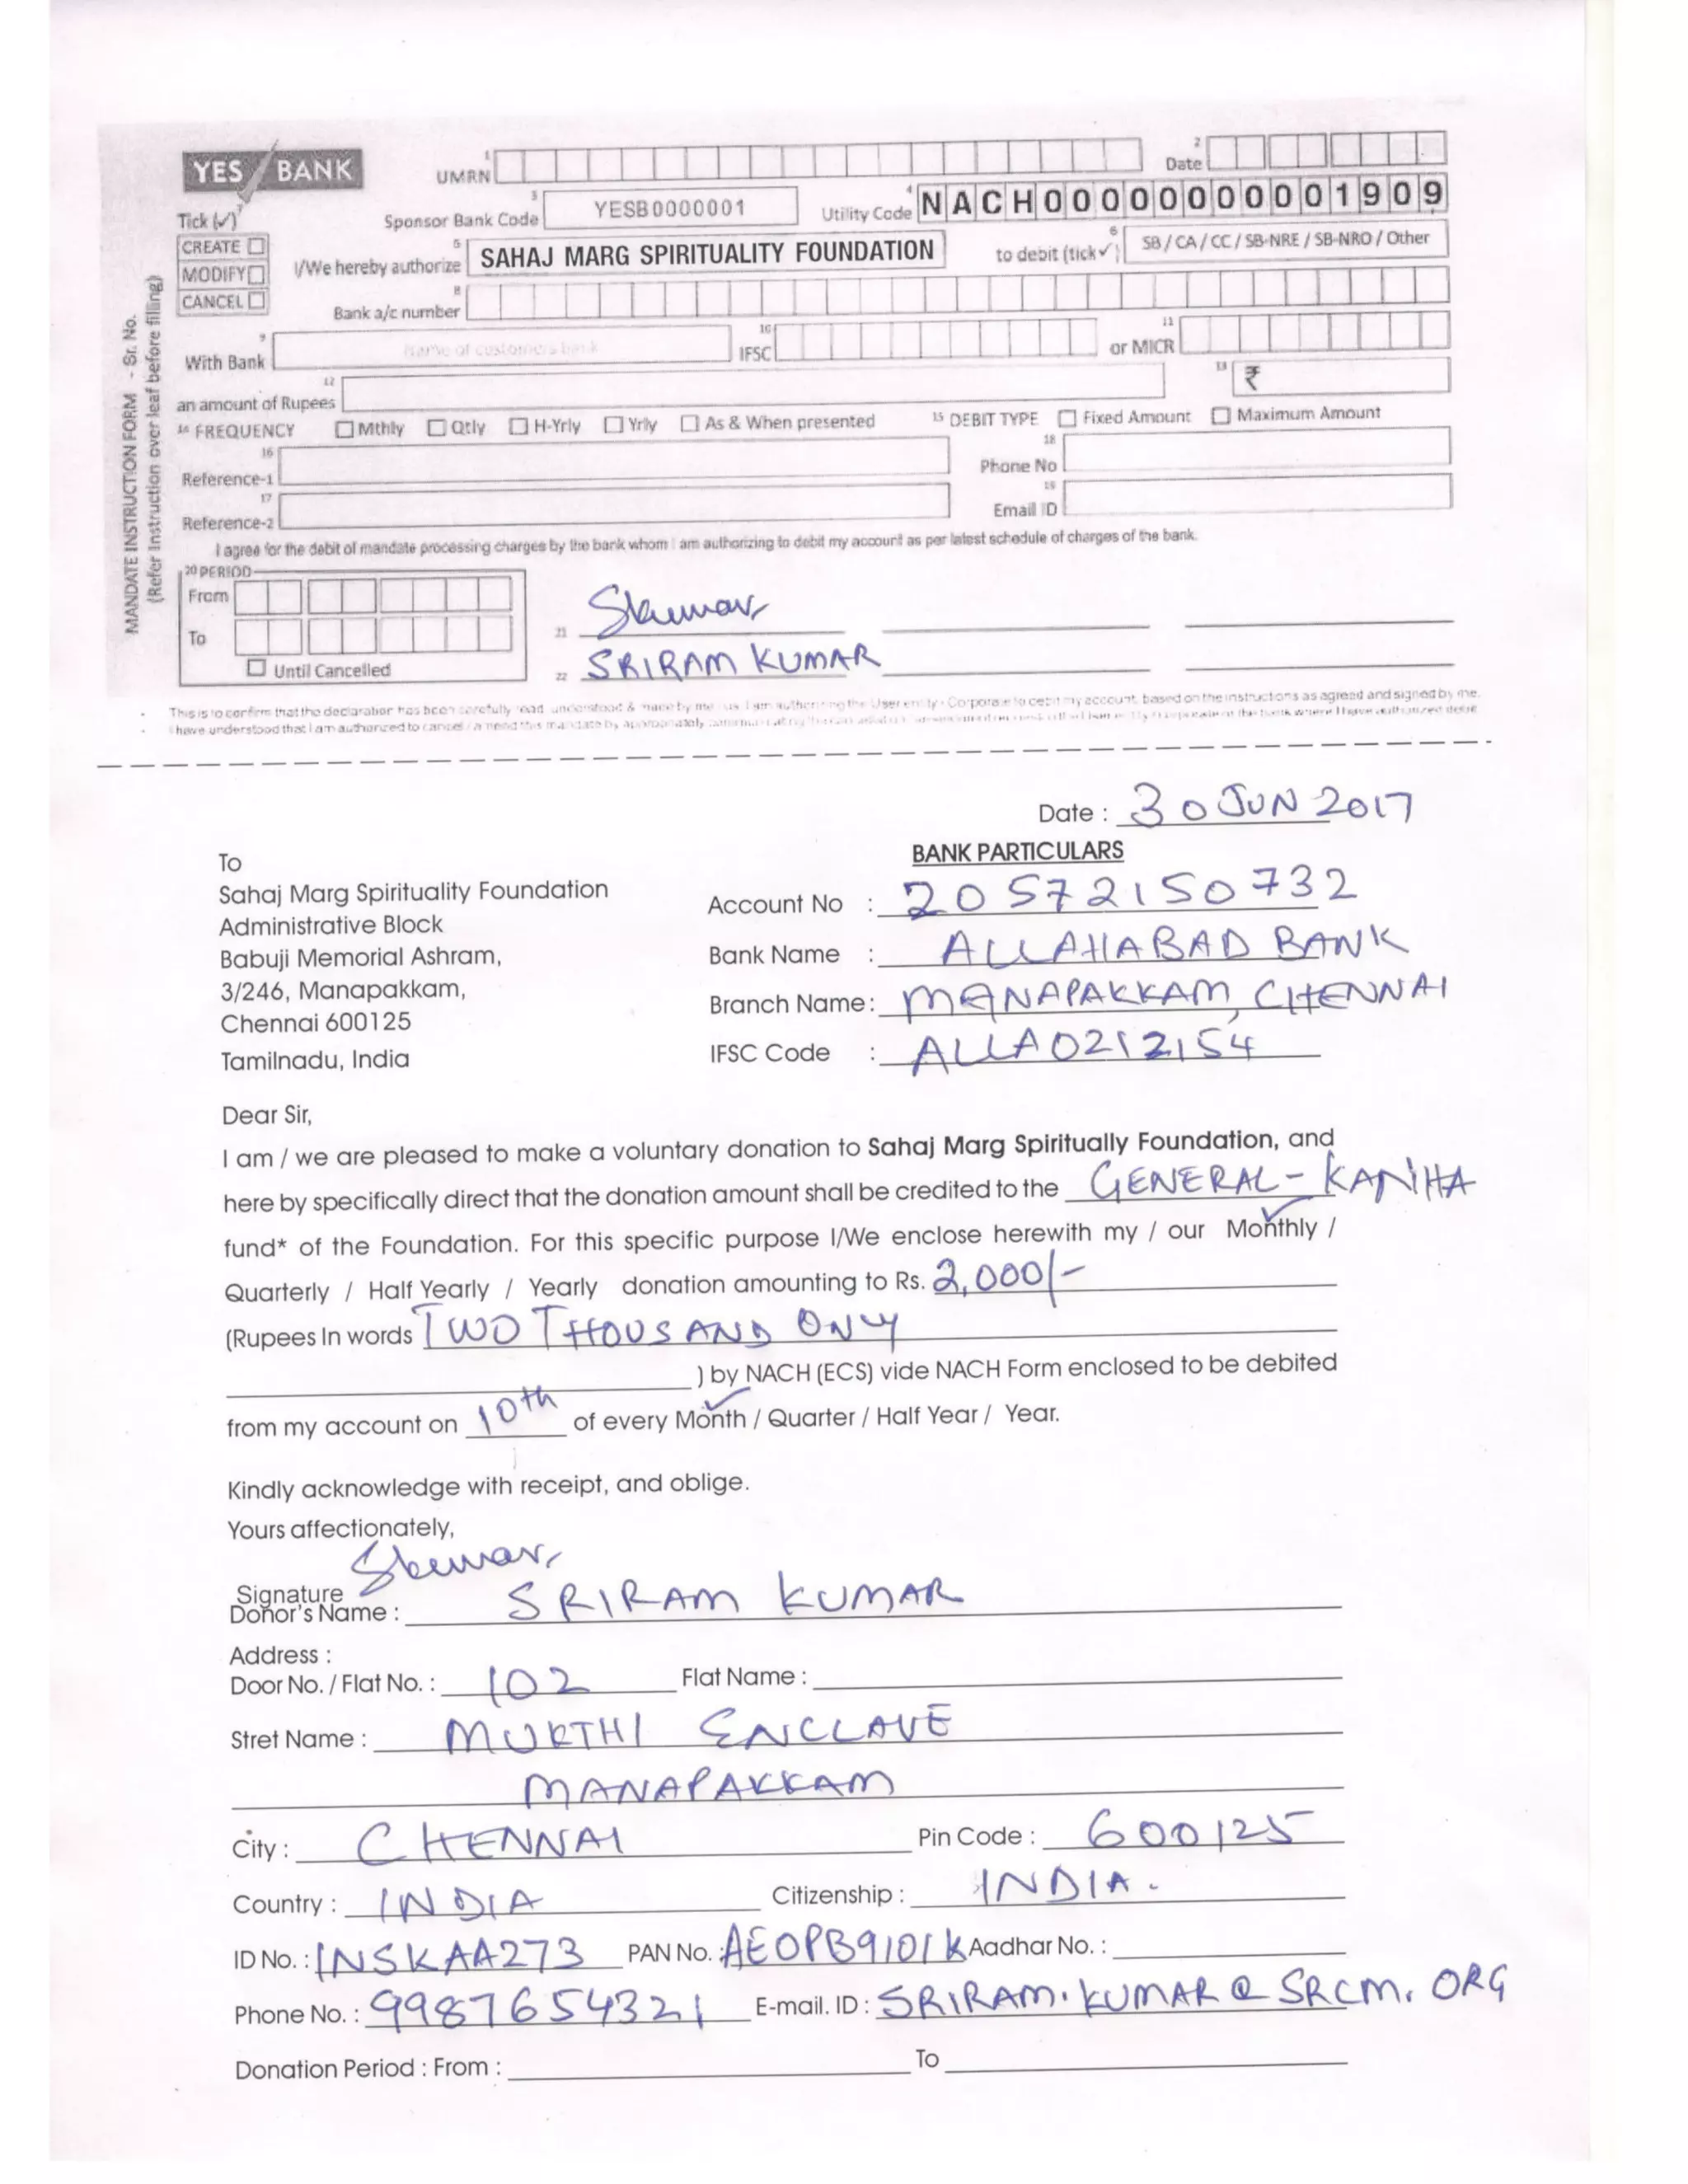 YES BANK
UMRN 1
Date 2
Tick (✓) 7
Sponsor Bank Code 3 YESB0000001
Utility Code 4 NACH00000000001909
CREATE ☐
MODIFY ☐
CANCEL ☐
I/We hereby authorize 5 SAHAJ MARG SPIRITUALITY FOUNDATION
to debit (tick✓) 6 SB / CA / CC / SB-NRE / SB-NRO / Other
Bank a/c number 8
With Bank 9 Name of customers bank
IFSC 10
or MICR 11
an amount of Rupees 12
13 ₹
14 FREQUENCY ☐ Mthly ☐ Qtly ☐ H-Yrly ☐ Yrly ☐ As & When presented
15 DEBIT TYPE ☐ Fixed Amount ☐ Maximum Amount
Reference-1 16
Phone No 18
Reference-2 17
Email ID 19
I agree for the debit of mandate processing charges by the bank whom I am authorizing to debit my account as per latest schedule of charges of the bank.
20 PERIOD
From
To
☐ Until Cancelled
21 Skumar
22 SRIRAM KUMAR
MANDATE INSTRUCTION FORM - Sr. No.
(Refer Instruction over leaf before filling)
This is to confirm that the declaration has been carefully read understood & made by me us I am authorizing the User entity - Corporate to debit my account, based on the instructions as agreed and signed by me.
I have understood that I am authorized to cancel
Date : 30 JUN 2017
To
Sahaj Marg Spirituality Foundation
Administrative Block
Babuji Memorial Ashram,
3/246, Manapakkam,
Chennai 600125
Tamilnadu, India
BANK PARTICULARS
Account No : 20572150732
Bank Name : ALLAHABAD BANK
Branch Name: MANAPAKKAM, CHENNAI
IFSC Code : ALLA0212154
Dear Sir,
I am / we are pleased to make a voluntary donation to Sahaj Marg Spiritually Foundation, and
here by specifically direct that the donation amount shall be credited to the GENERAL - KANHA
fund* of the Foundation. For this specific purpose I/We enclose herewith my / our Monthly ✓ /
Quarterly / Half Yearly / Yearly donation amounting to Rs. 2,000/-
(Rupees In words TWO THOUSAND ONLY
) by NACH (ECS) vide NACH Form enclosed to be debited
from my account on 10th of every Month ✓ / Quarter / Half Year / Year.
Kindly acknowledge with receipt, and oblige.
Yours affectionately,
Signature Skumar
Donor's Name : SRIRAM KUMAR
Address :
Door No. / Flat No. : 102 Flat Name :
Stret Name : MURTHI ENCLAVE
MANAPAKKAM
City : CHENNAI Pin Code : 600125
Country : INDIA Citizenship : INDIA.
ID No. : INSKAA273 PAN No. : AEOPB9101K Aadhar No. :
Phone No. : 9987654321 E-mail. ID : SRIRAM.KUMAR@SRCM.ORG
Donation Period : From : To